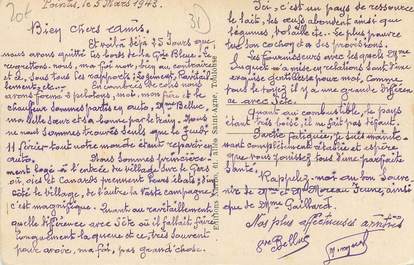 20f
31
Poirius, le 5 Mars 1943.
Bien chers amis.
Et voilà déjà 25 Jours que
nous avons quitté les bords de la Gde Bleue. Le
regrettons-nous, ma foi non, bien au contraire
et ce, sous tous les rapports, logement, ravitail-
lement, etc.
En combrées de colis nous
avons formés 2 pelotons, moi, mon frère et le
chauffeur sommes partis en auto. Mme Belluc,
ma belle sœur et sa bonne par le train. Nous
ne nous sommes trouvés seuls que le Jeudi
11 février tout notre monde étant reparti en
auto.
Nous sommes princière-
ment logé à l'entrée du village sur le Gers
où, oies et canards prennent leurs ébats, d'un
côté le village, de l'autre la vaste campagne,
c'est magnifique. Quant au ravitaillement
quelle différence avec Sète où il fallait faire
longuement la queue et ce, très souvent
pour avoir, ma foi, pas grand'chose.
Ici, c'est un pays de ressource
le lait, les œufs abondent ainsi que
légumes, volaille etc. Le plus pauvre
tue son cochon et a des provisions.
Les fournisseurs avec lesquels
ma mise en relations sont d'une
exquise gentillesse pour moi, comme
tous le voyez il y a une grande différen
ce avec Sète.
Quant au combustible, le pays
étant très boisé, il ne fait pas défaut.
Partie fatiguée, je suis mainte-
nant complètement rétablie et espère
que vous jouissez tous d'une parfaite
Santé.
Rappelez-moi au bon Souve-
nir de Mme et Mme Moreau Jeune, ainsi
que de Mme Gaillard.
Nos plus affectueuses amitiés
Belluc